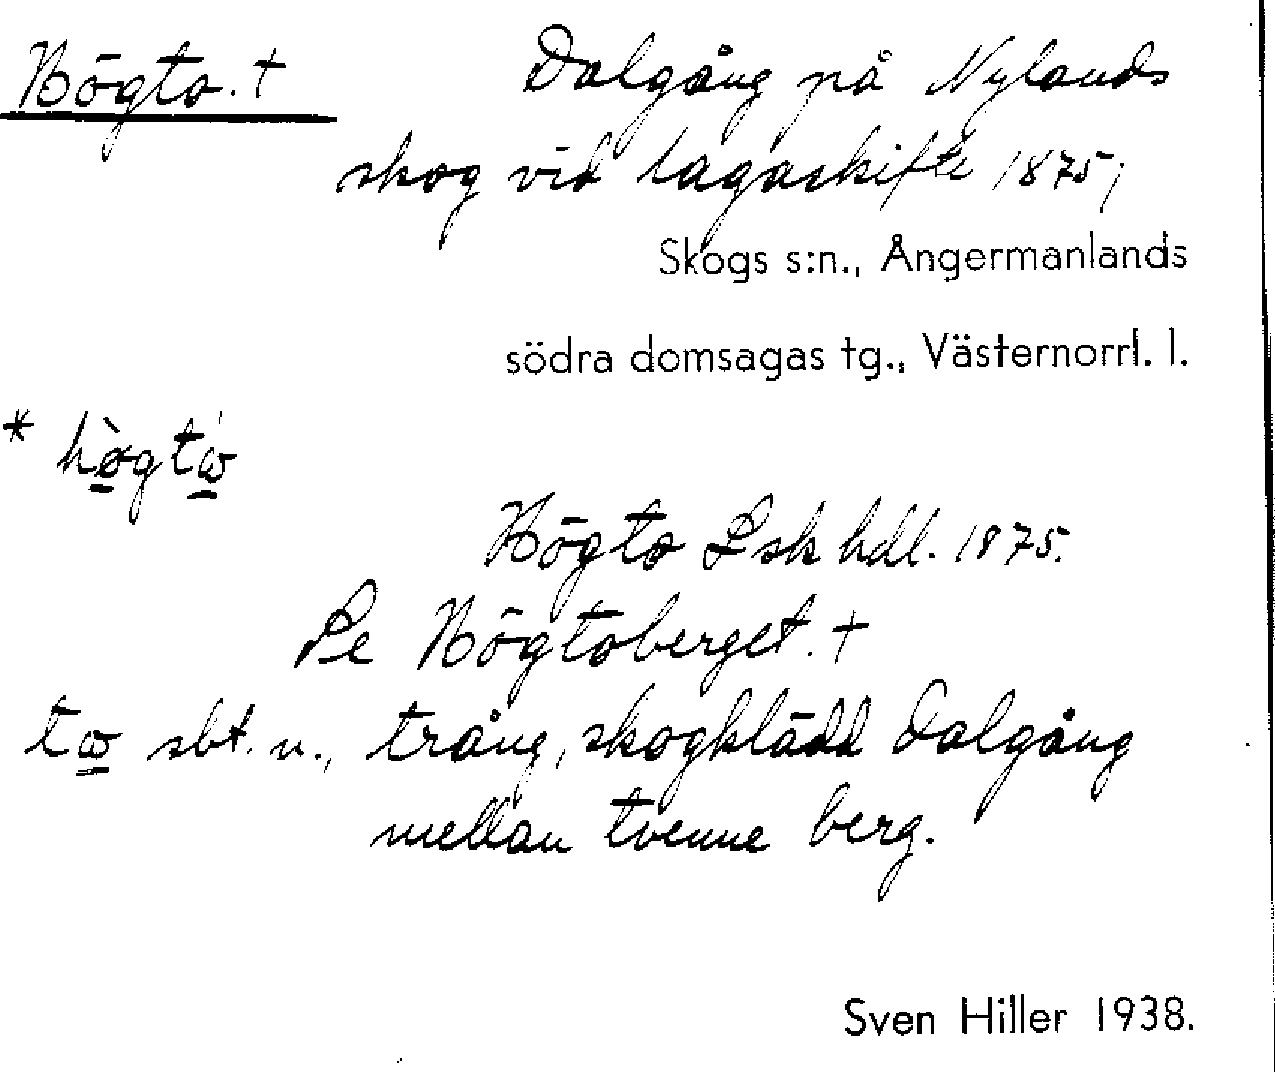 Högto. † Dalgång på Nylands
skog vid lagaskifte 1875;
Skogs s:n., Ångermanlands
södra domsagas tg., Västernorrl. l.
* hø̀gtω
Högto Lsk hdl. 1875.
Se Högtoberget. †
tω sbt. n., trång, skogklädd dalgång
mellan tvenne berg.
Sven Hiller 1938.